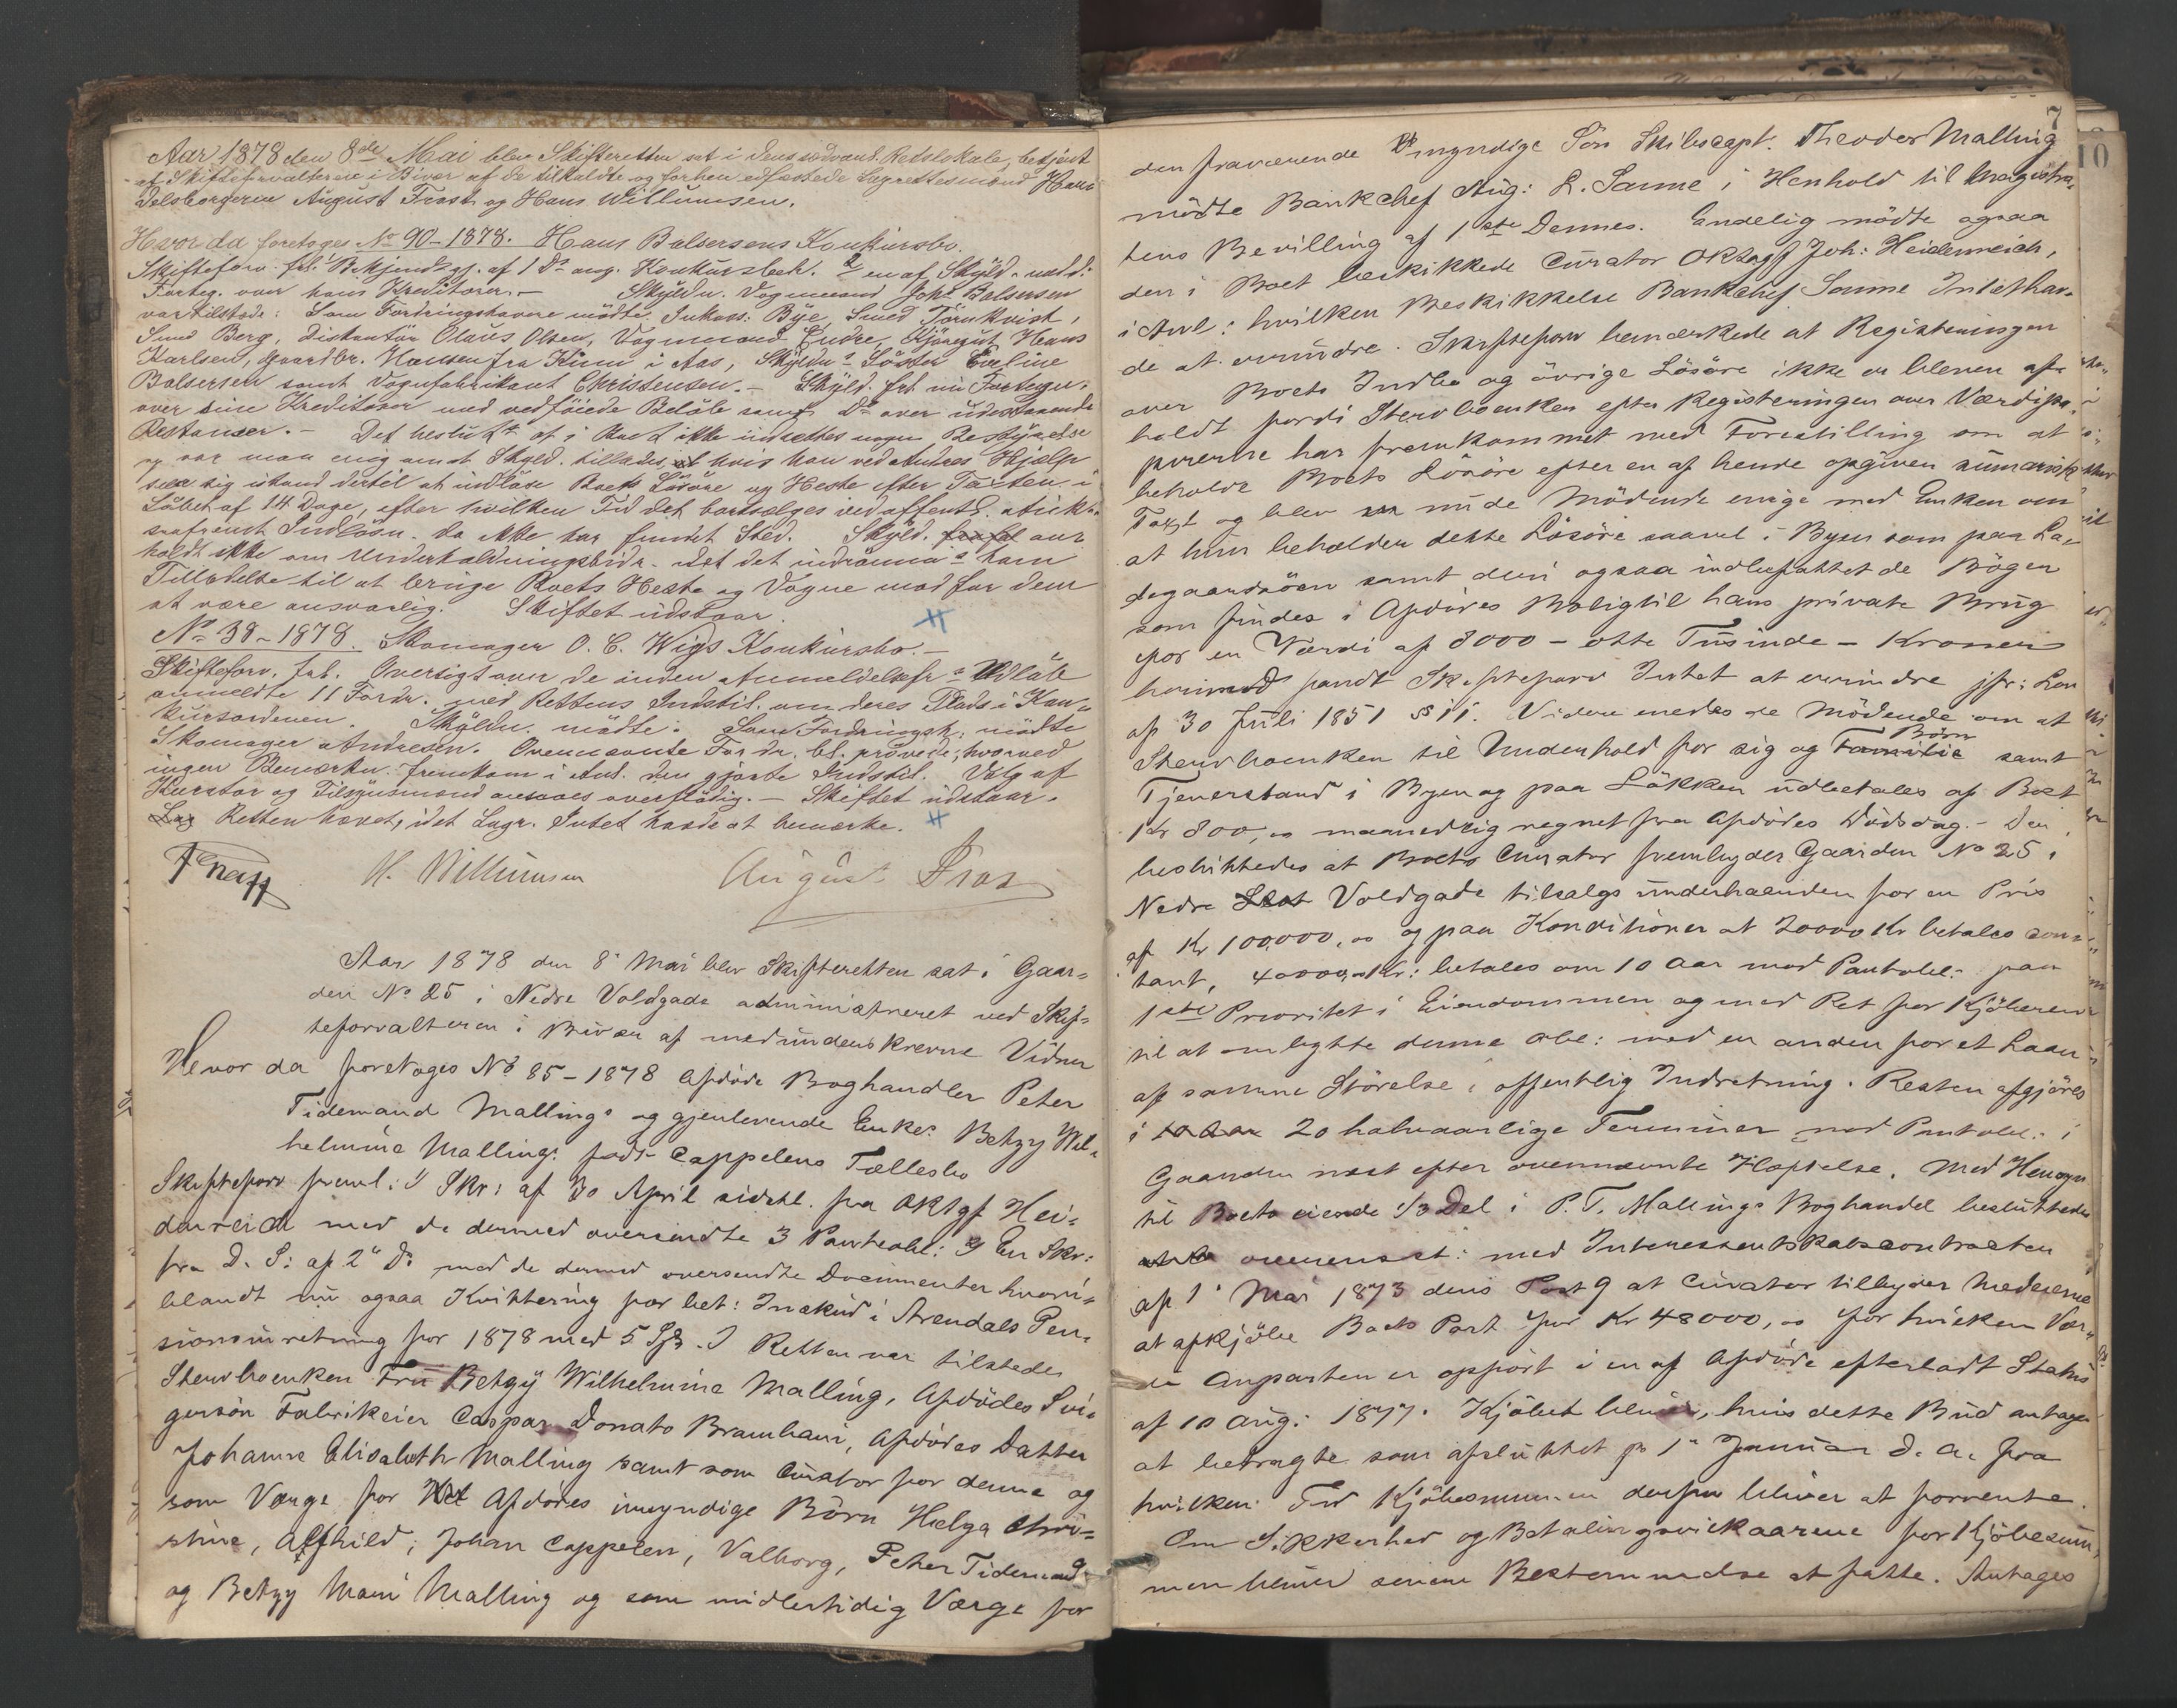 Aar 1878 den 8de Mai blev Skifteretten sat i dens sædvanl. Retslokale, betjent
af Skifteforvalteren i Bivær af de tilkaldte og forhen edfæstede Lagrettesmænd Han-
delsborgerne August Frost og Hans Willumsen.
Hvor da foretoges No 90-1878. Hans Balsersens Konkursbo.
Skifteforv. frl. Bekjendtgj. af 1 Ds ang. Konkursbeh. 2 en af Skyld. medd.
Forteg. over hans Kreditorer.- Skyldn. Vognmand Johs Balsersen
var tilstede: Som Fordringshavere mødte Inkass: Bye, Smed Törnkvist,
Smed Berg, Distantör Olaus Olsen, Vognmand Endre, Kjöregut Hans
Karlsen, gaardbr. Hansen fra Kinn i Aas, Skyldns Søster Eveline
Balsersen samt Vognfabrikant Christensen.- Skyld. frl. nu Fortegn.
over sine Kreditorer med vedföiede Belöb samt Do over udestaaende
Restancer.- Det beslutts at i Boet ikke indsættes nogen Bestyrelse
og var man enig om at Skyld. tillades, at hvis han ved Andres Hjælp
seer sig istand dertil at indløse Boets Løsøre og Heste efter Taxten i
Løbet af 14 Dage, efter hvilken Tid det bortsælges ved offentl. Auktn
saafremt Indløsn. da ikke har fundet Sted. Skyld. an-
holdt ikke om Underholdningsbidr. idet det indrömmes ham
Tilladelse til at bringe Boets Heste og Vogne mod for dem
at være ansvarlig. Skiftet udstaar.
No 38-1878. Skomager O. C. Wigs Konkursbo.-
Skifteforv. frl. Oversigt over de inden Anmeldelsesfrs Udløb
anmeldte 11 Fordr. med Rettens Indstil. om deres Plads i Kon-
kursordenen. Skyldn. mødte. Som Fordringsh. mødte
Skomager Andresen. Ovennævnte Fordr. bl. prøvede, hvorved
ingen Bemærkn. fremkom i Anl. den gjorte Indstil. Valg af
Kurator og Tilsynsmænd ansaaes overflødig.- Skiftet udstaar.
Lag Retten hævet, idet Lagr. Intet havde at bemærke.
H. Willumsen August Frost
Aar 1878 den 8' Mai blev Skifteretten sat i Gaar-
den No 25 i Nedre Voldgade administreret ved Skif-
teforvalteren i Bivær af medunderskrevne Vidner
Hvor da foretoges No 85-1878 Afdøde Boghandler Peter
Tidemand Mallings og gjenlevende Enke: Betzy Wil-
helmine Mallings født Cappelens Fællesbo
Skifteforv freml: 1) Skr: af 30 April sidstl. fra ORSagf Hei-
denreich med de dermed oversendte 3 Panteobl: 2) En Skr:
fra D. S: af 2' Ds med de dermed oversendte Documenter hvori-
blandt nu ogsaa Kvittering for bet: Inskud i Arendals Pen-
sionsinretning for 1878 med 5 Sp. I Retten var tilstede
Stervboenken Fru Betzy Wilhelmine Malling, Afdødes Svi-
gersøn Fabrikeier Caspar Donato Bramhani, Afdødes Datter
Johanne Elisabeth Malling samt som Curator for denne og
som Værge for Afdødes umyndige Børn Helga Chri-
stine, Alfhild, Johan Cappelen, Valborg, Peter Tidemand
og Betzy Marie Malling og som midlertidig Værge for
7
den fraværende Umyndige Søn Skibscapt. Theodor Malling
mødte Bankchef Aug: L. Sanne i Henhold til Magistra-
tens Bevilling af 1ste Dennes. Endelig mødte ogsaa
den i Boet beskikkede Curator ORSagf Joh: Heidenreich,
i Anl: hvilken Beskikkelse Bankchef Sanne Intet hav-
de at erindre. Skifteforv bemærkede at Registeringen
over Boets Indbo og øvrige Løsøre ikke er bleven af-
holdt fordi Stervboenken efter Registeringen over Værdipa-
pirerne har fremkommet med Forestilling om at
beholde Boets Løsøre efter en af hende opgiven summarisk
Taxt og blev nu de Mødende enige med Enken om
at hun beholder dette Løsøre saavel i Byen som paa La-
degaardsøen samt deri ogsaa indbefattet de Bøger
som findes i Afdødes Bolig til hans private Brug
for en Værdi af 8000 - otte Tusinde - Kroner
herimod fandt Skifteforv Intet at erindre jfr: Lov
af 30 Juli 1851 § 11. Videre enedes de Mødende om at
Stervboenken til Underhold for sig og Familie Børn samt
Tjenerstand i Byen og paa Løkken udbetales af Boet
Kr 800,00 maanedlig regnet fra Afdødes Dødsdag.- Der
besluttedes at Boets Curator frembyder Gaarden No 25 i
Nedre Slot Voldgade tilsalgs underhaanden for en Pris
af Kr 100000,00 og paa Konditioner at 20000 Kr betales con-
tant, 40000 Kr: betales om 10 Aar mod Panteobl: paa
1ste Prioritet i Eiendommen og med Ret for Kjøberen
til at ombytte denne Obl: med en anden for et Laan
af samme Størelse i offentlig Indretning. Resten afgjøres
i 20 halvaarlige Terminer mod Panteobl: i
Gaarden næst efter ovennævnte Hæftelse. Med Hensyn
til Boets eiende 1/3 Del i P. T. Mallings Boghandel besluttedes
overensst: med Interessentskabscontracten
af 1' Mai 1873 dens Post 9 at Curator tilbyder Medeierne
at afkjøbe Boets Part for Kr 48000,00 for hvilken Vær-
di Anparten er opført i en af Afdøde efterladt Status
af 10 Aug: 1877. Kjøbet bliver, hvis dette Bud antages
at betragte som afsluttet pr 1' Januar d. A. fra
hvilken Tid Kjøbesummen derfor bliver at forrente.
Om Sikkerhed og Betalingsvilkaarene for Kjøbesum-
men bliver senere Bestemmelse at fatte. Antages
10